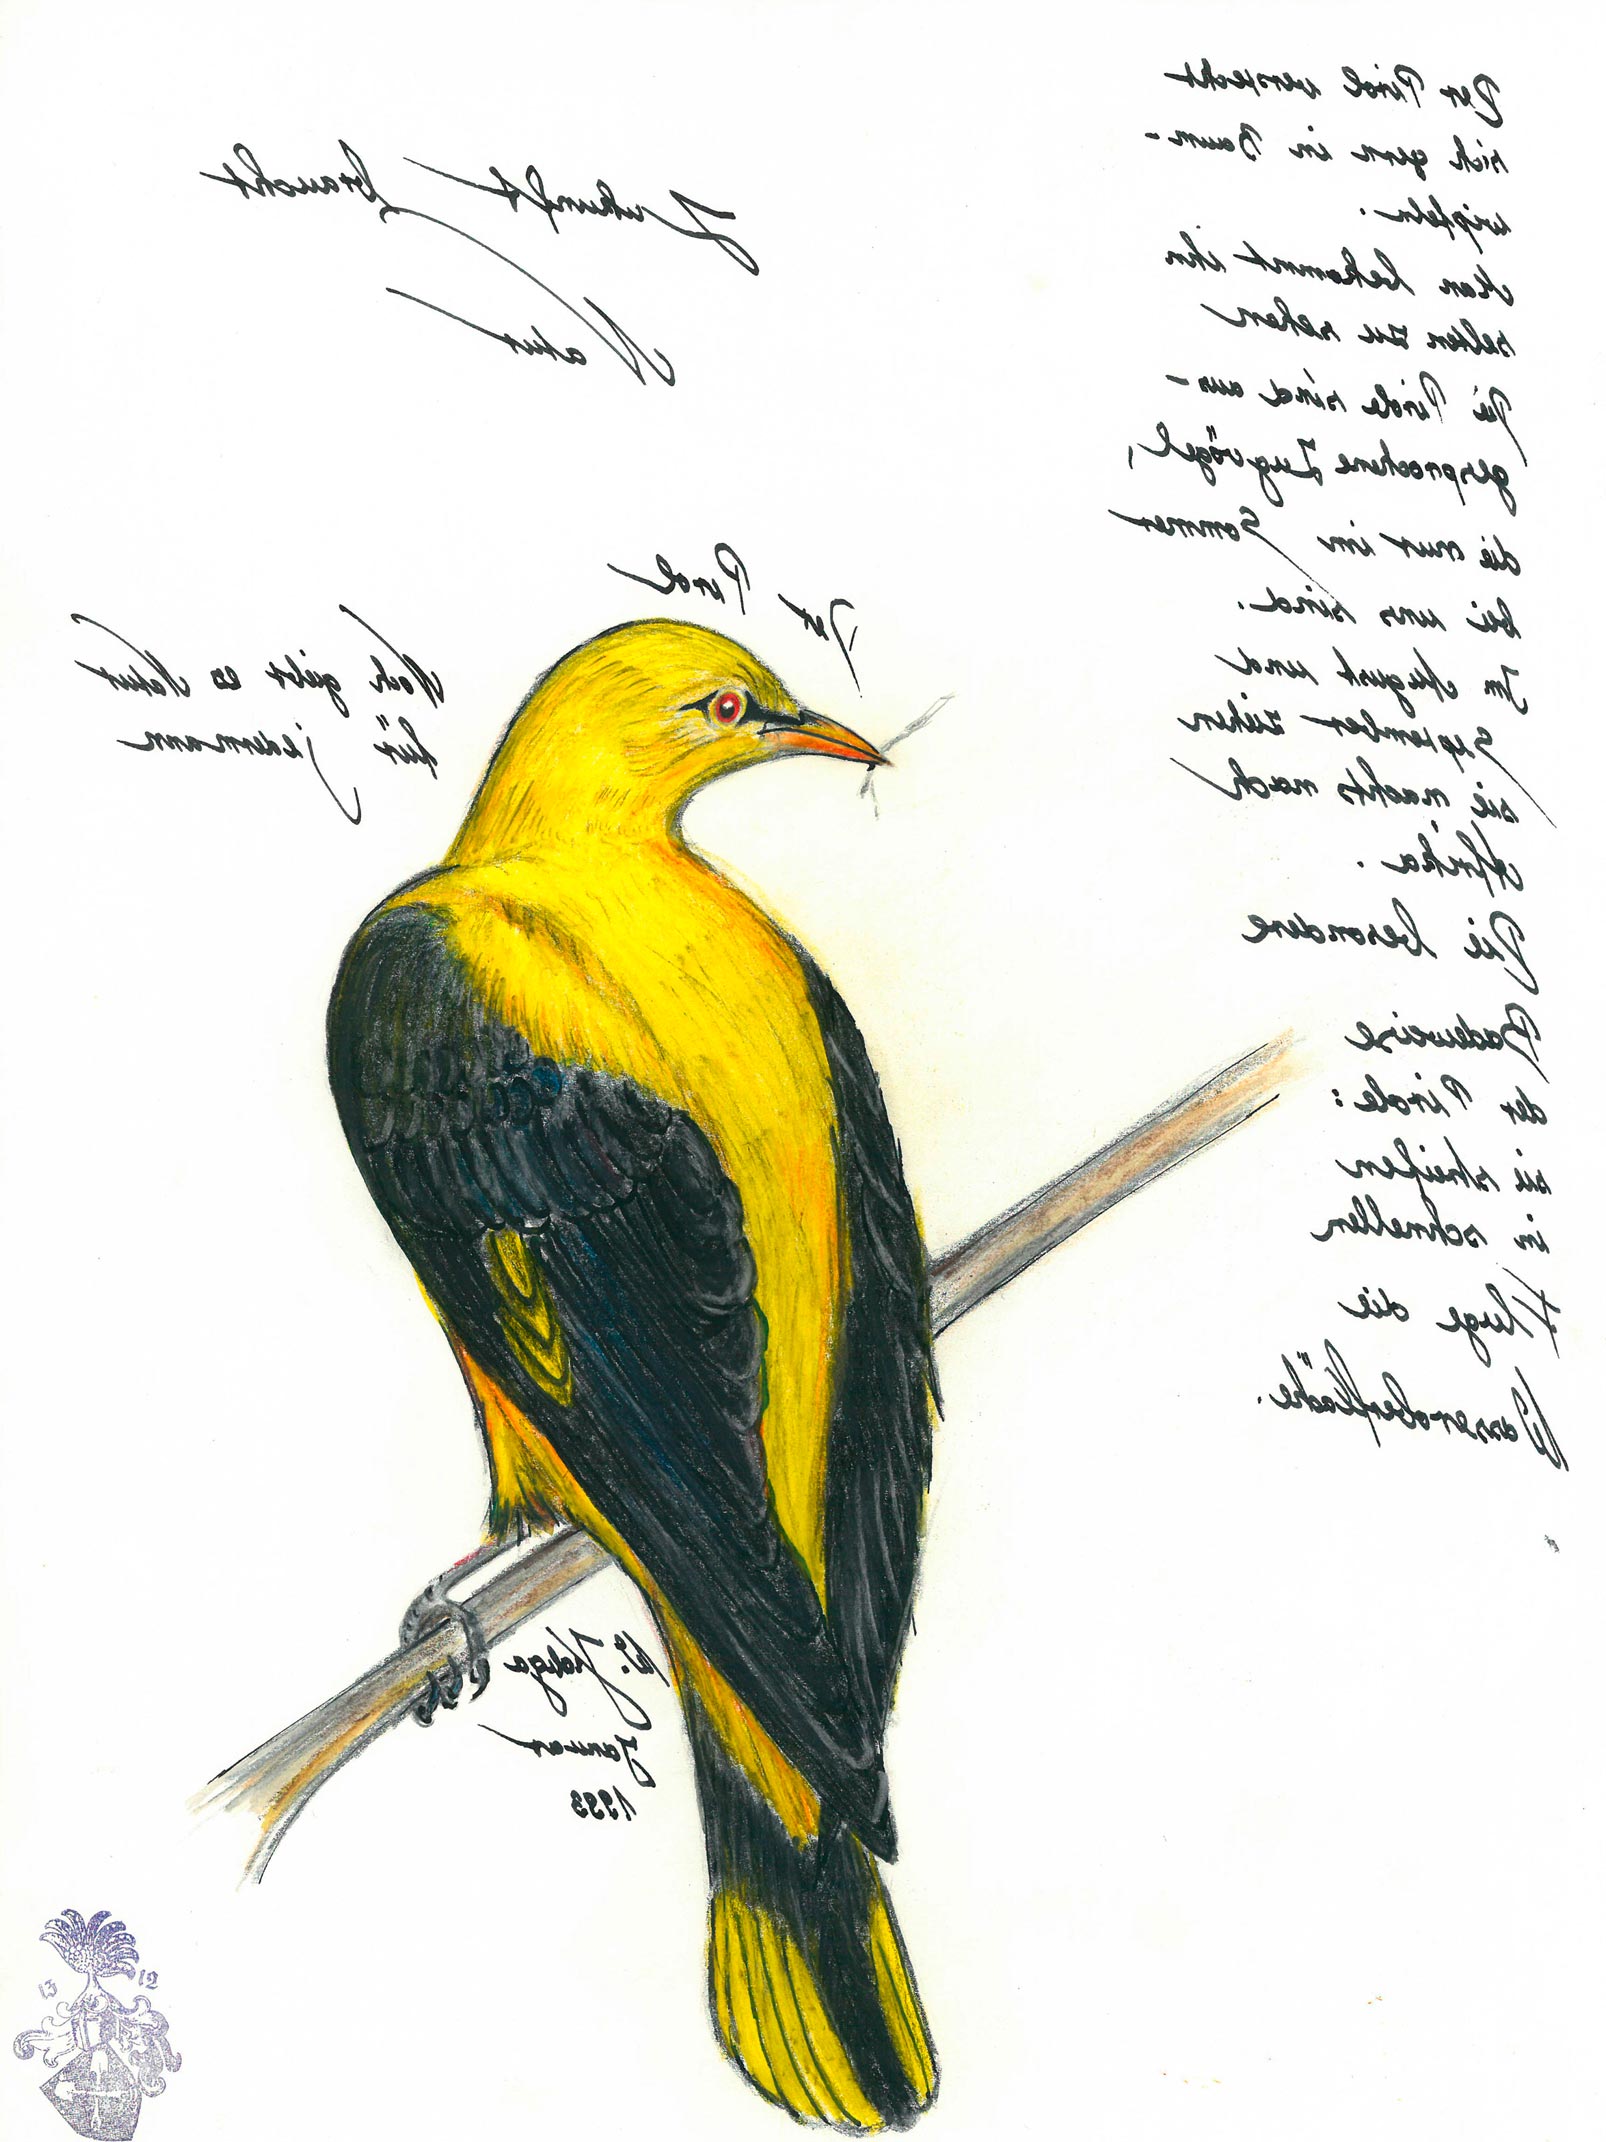 Zukunft braucht
Natur
Der Pirol
Noch gibt es Natur
für jedermann
Der Pirol versteckt
sich gern in Baum-
wipfeln.
Man bekommt ihn
selten zu sehen
Die Pirole sind aus-
gesprochene Zugvögel,
die nur im Sommer
bei uns sind.
Im August und
September ziehen
sie nachts nach
Afrika.
Die besondere
Badeweise
der Pirole:
sie streifen
in schnellen
Fluge die
Wasseroberfläche.
Januar
1993
13 12